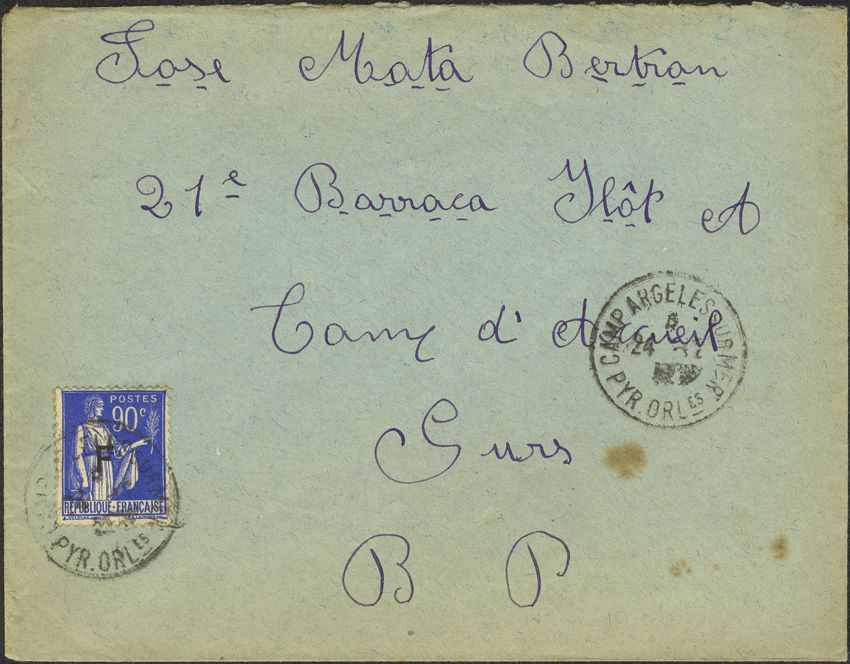 Jose Mata Bertran
21e Barraca Ilôt A
Camp d' Accueil
Gurs
B P
CAMP ARGELES SUR MER
24
PYR. ORLES
POSTES
90c
F
REPUBLIQUE-FRANÇAISE
PYR. ORLES